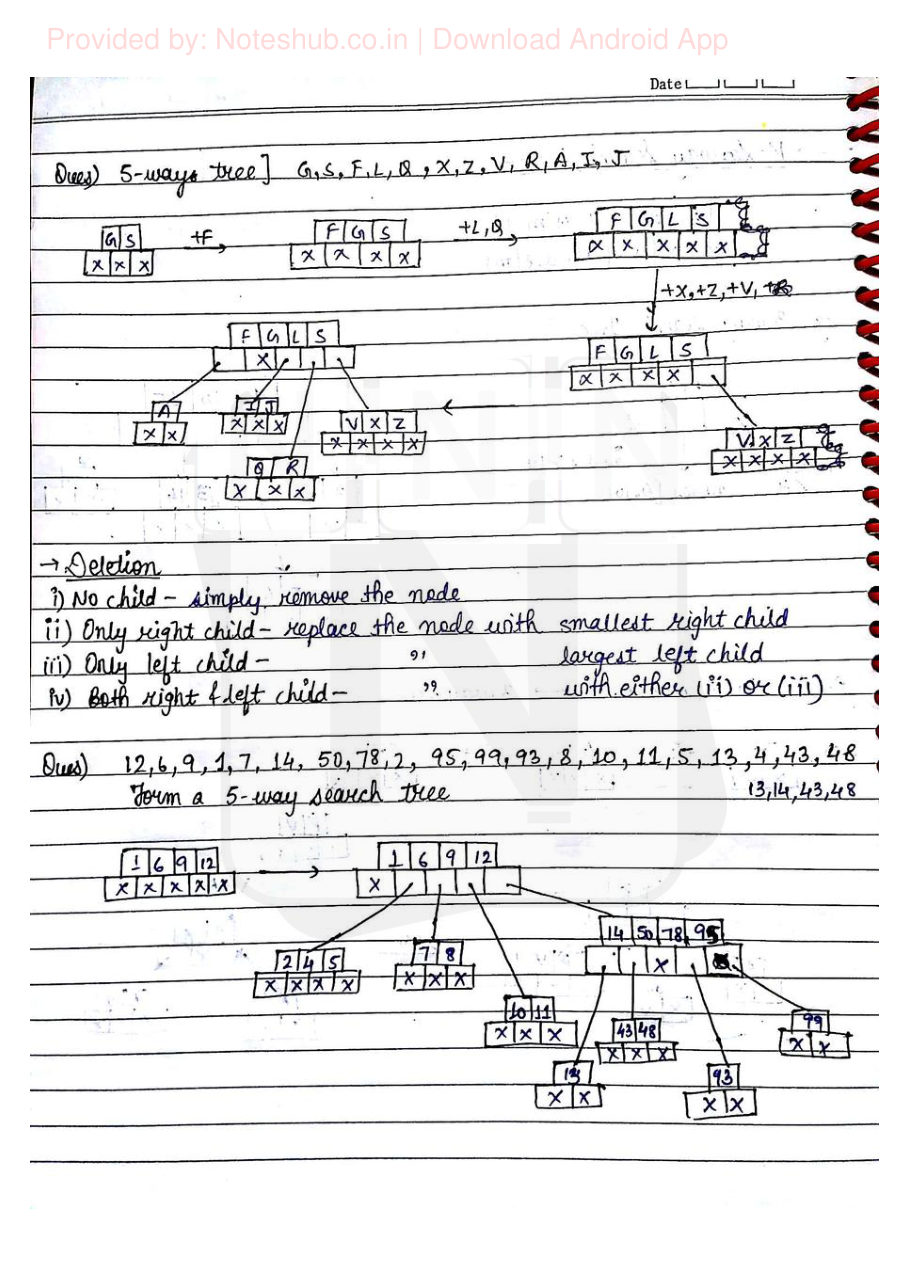 Provided by: Noteshub.co.in | Download Android App
Date
Ques) 5-ways tree] G, S, F, L, Q, X, Z, V, R, A, I, J
G S +F F G S +L, Q F G L S
X X X X X X X X X X X X
+X, +Z, +V,
F G L S F G L S
X X X X X
A I J V X Z V X Z
X X X X X X X X X X X X X
Q R
X X X
→ Deletion
i) No child - simply remove the node
ii) Only right child - replace the node with smallest right child
iii) Only left child - " largest left child
iv) Both right & left child - " with either (ii) or (iii)
Ques) 12, 6, 9, 1, 7, 14, 50, 78, 2, 95, 99, 93, 8, 10, 11, 5, 13, 4, 43, 48
Form a 5-way search tree 13, 14, 43, 48
1 6 9 12 1 6 9 12
X X X X X X
14 50 78 95
2 4 5 7 8 X
X X X X X X X
10 11 43 48 99
X X X X X X X X
13 93
X X X X